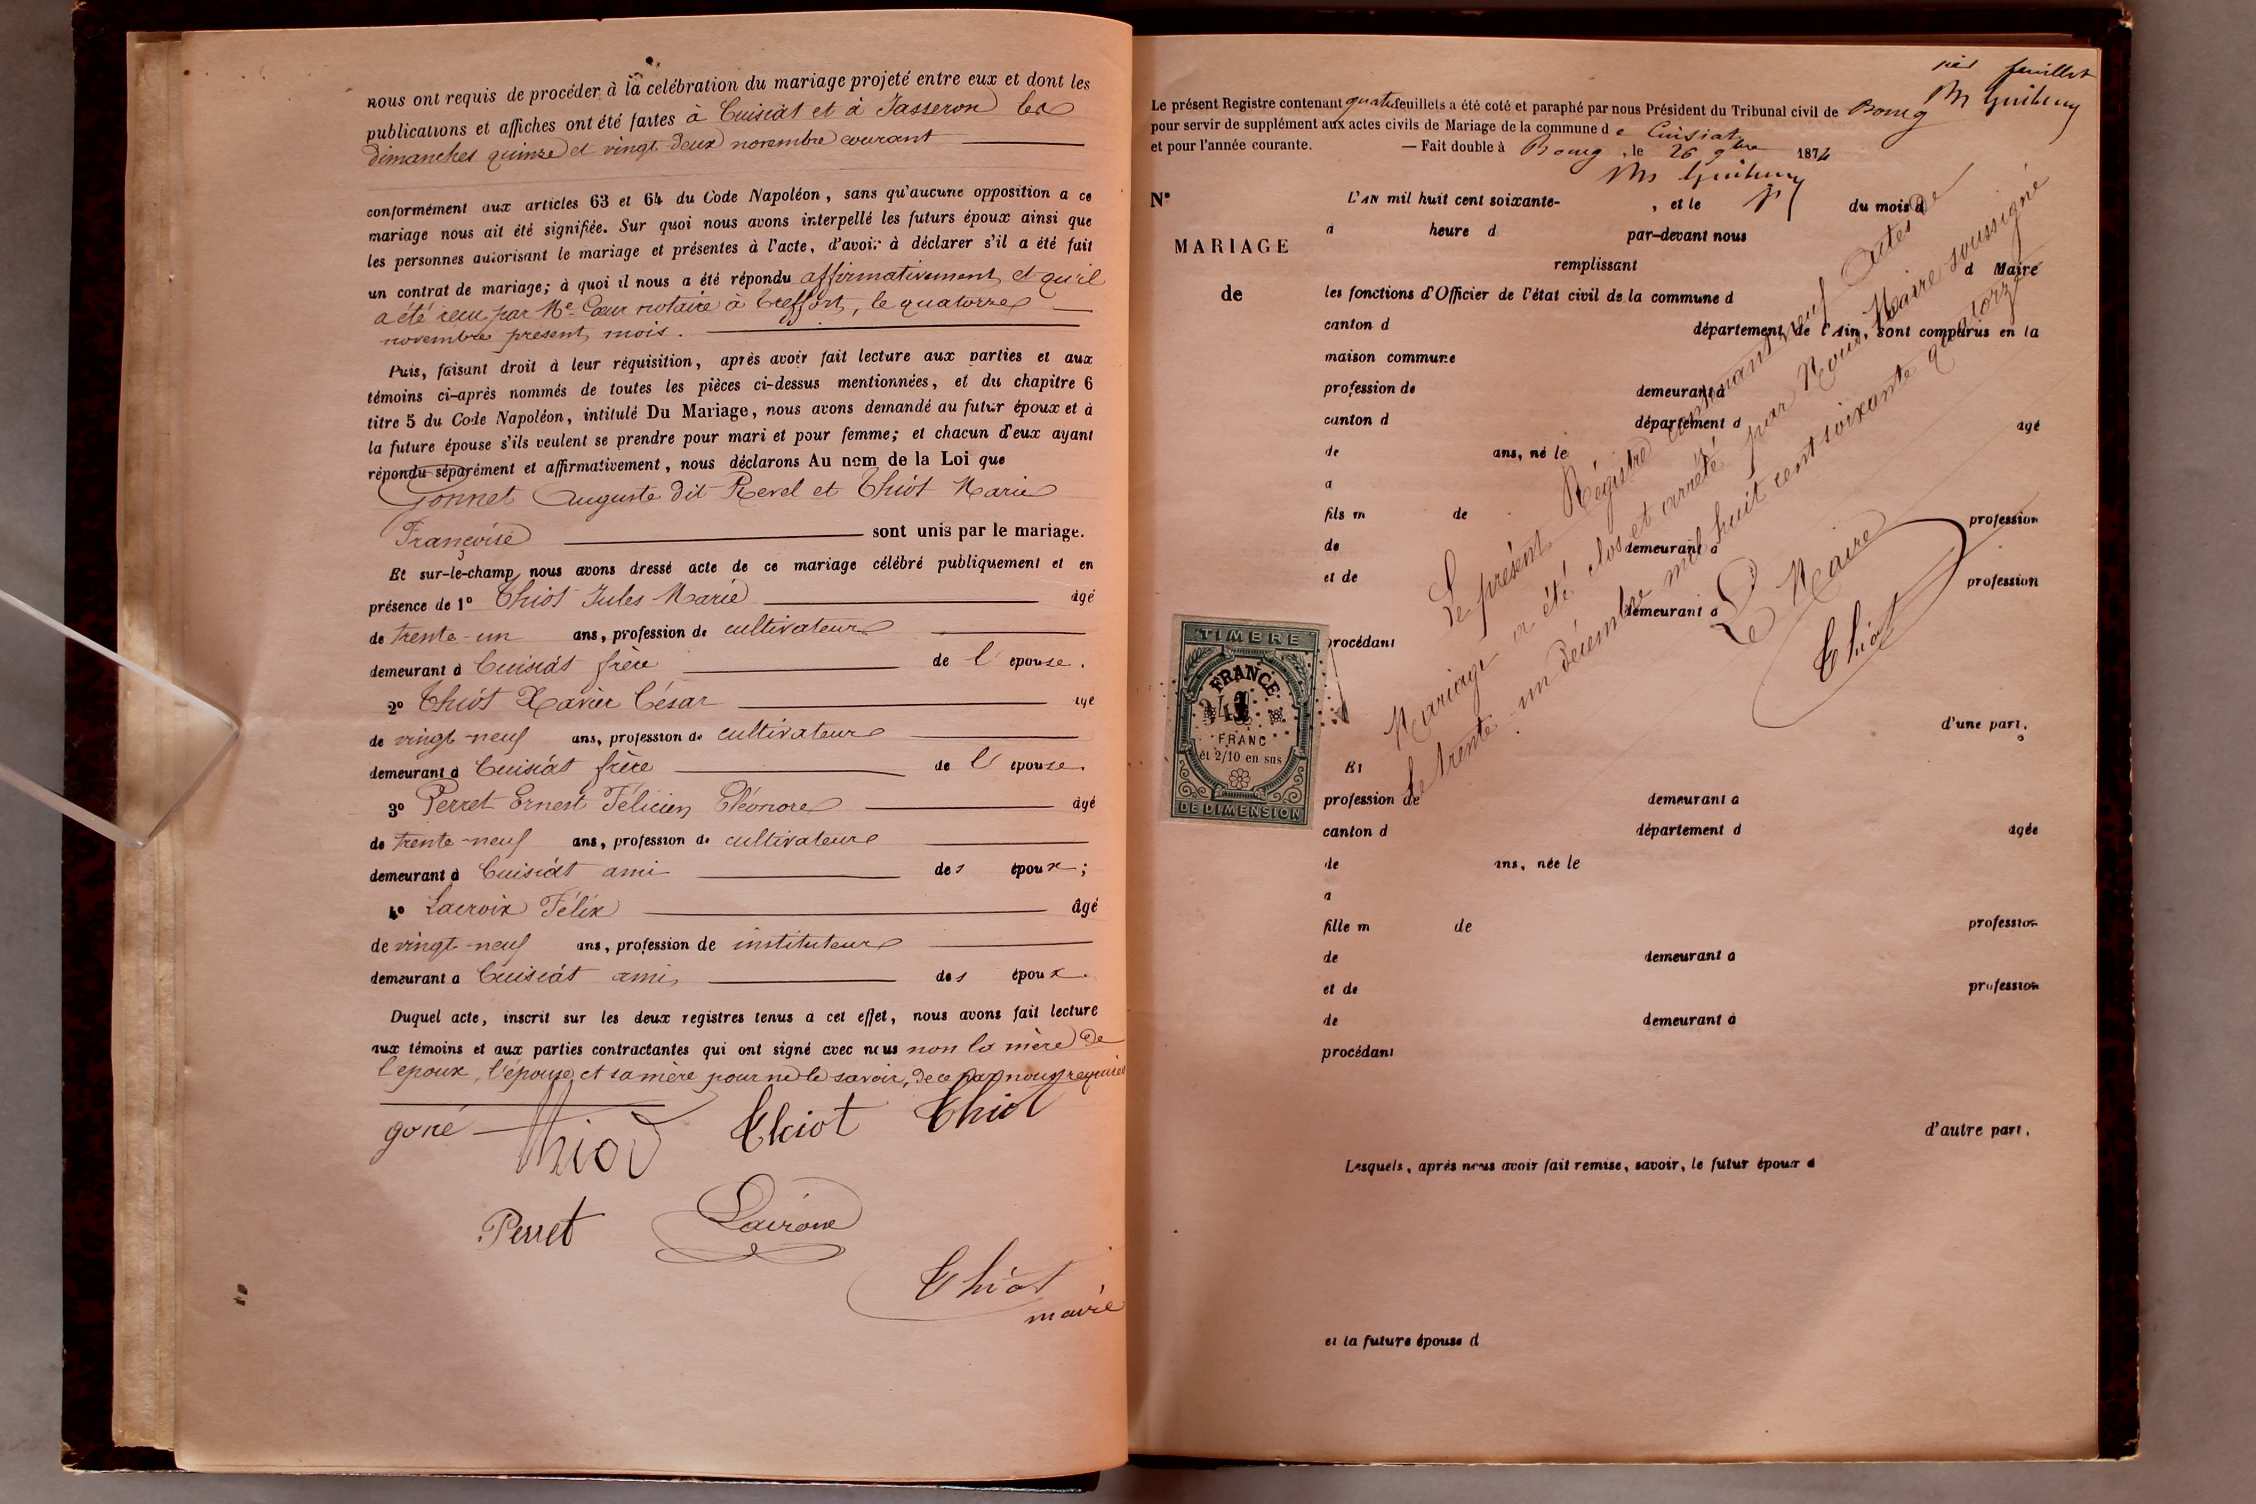 nous ont requis de procéder à la celébration du mariage projeté entre eux et dont les
publications et affiches ont été faites à Cuisiat et à Jasseron les
dimanches quinze et vingt deux novembre courant
conformément aux articles 63 et 64 du Code Napoléon, sans qu'aucune opposition a ce
mariage nous ait été signifiée. Sur quoi nous avons interpellé les futurs époux ainsi que
les personnes autorisant le mariage et présentes à l'acte, d'avoir à déclarer s'il a été fait
un contrat de mariage; à quoi il nous a été répondu affirmativement et qu'il
a été reçu par Me. Cœur notaire à Treffort, le quatorze
novembre présent mois.
Puis, faisant droit à leur réquisition, après avoir fait lecture aux parties et aux
témoins ci-après nommés de toutes les pièces ci-dessus mentionnées, et du chapitre 6
titre 5 du Code Napoléon, intitulé Du Mariage, nous avons demandé au futur époux et à
la future épouse s'ils veulent se prendre pour mari et pour femme; et chacun d'eux ayant
répondu séparément et affirmativement, nous déclarons Au nom de la Loi que
Gonnet Auguste dit Revel et Thiot Marie
Françoise sont unis par le mariage.
Et sur-le-champ nous avons dressé acte de ce mariage célébré publiquement et en
présence de 1º Thiot Jules Marie âgé
de trente-un ans, profession de cultivateur
demeurant à Cuisiat frère de l'épouse.
2º Thiot Xavier César âgé
de vingt-neuf ans, profession de cultivateur
demeurant à Cuisiat frère de l'épouse.
3º Perret Ernest Félicien Eléonore âgé
de trente-neuf ans, profession de cultivateur
demeurant à Cuisiat ami des époux;
4º Lacroix Félix âgé
de vingt-neuf ans, profession de instituteur
demeurant a Cuisiat ami des époux.
Duquel acte, inscrit sur les deux registres tenus à cet effet, nous avons fait lecture
aux témoins et aux parties contractantes qui ont signé avec nous non la mère de
l'époux, l'épouse et sa mère pour ne le savoir, de ce par nous requises
goné Thiot Thiot Thiot
Perret Lacroix
Thiot
maire
feuillet
Le présent Registre contenant quatre feuillets a été coté et paraphé par nous Président du Tribunal civil de Bourg
pour servir de supplément aux actes civils de Mariage de la commune de Cuisiat
et pour l'année courante. — Fait double à Bourg, le 26 9bre 1874
Nº
MARIAGE
de
L'AN mil huit cent soixante- , et le du mois d
à heure d par-devant nous
remplissant d Maire
les fonctions d'Officier de l'état civil de la commune d
canton d département de l'Ain, sont comparus en la
maison commune
profession de demeurant à
canton d département d âgé
de ans, né le
a
fils m de profession
de demeurant à
et de profession
demeurant à
procédant
d'une part.
Le présent Régistre contenant neuf actes de
Mariage a été clos et arrêté par Nous, Maire soussigné
le trente-un décembre mil huit cent soixante quatorze
Le Maire
Thiot
TIMBRE
FRANCE
1
FRANC
et 2/10 en sus
DE DIMENSION
Et
profession de demeurant à
canton d département d âgée
de ans, née le
a
fille m de profession
de demeurant à
et de profession
de demeurant à
procédant
d'autre part.
Lesquels, après nous avoir fait remise, savoir, le futur époux d
et la future épouse d